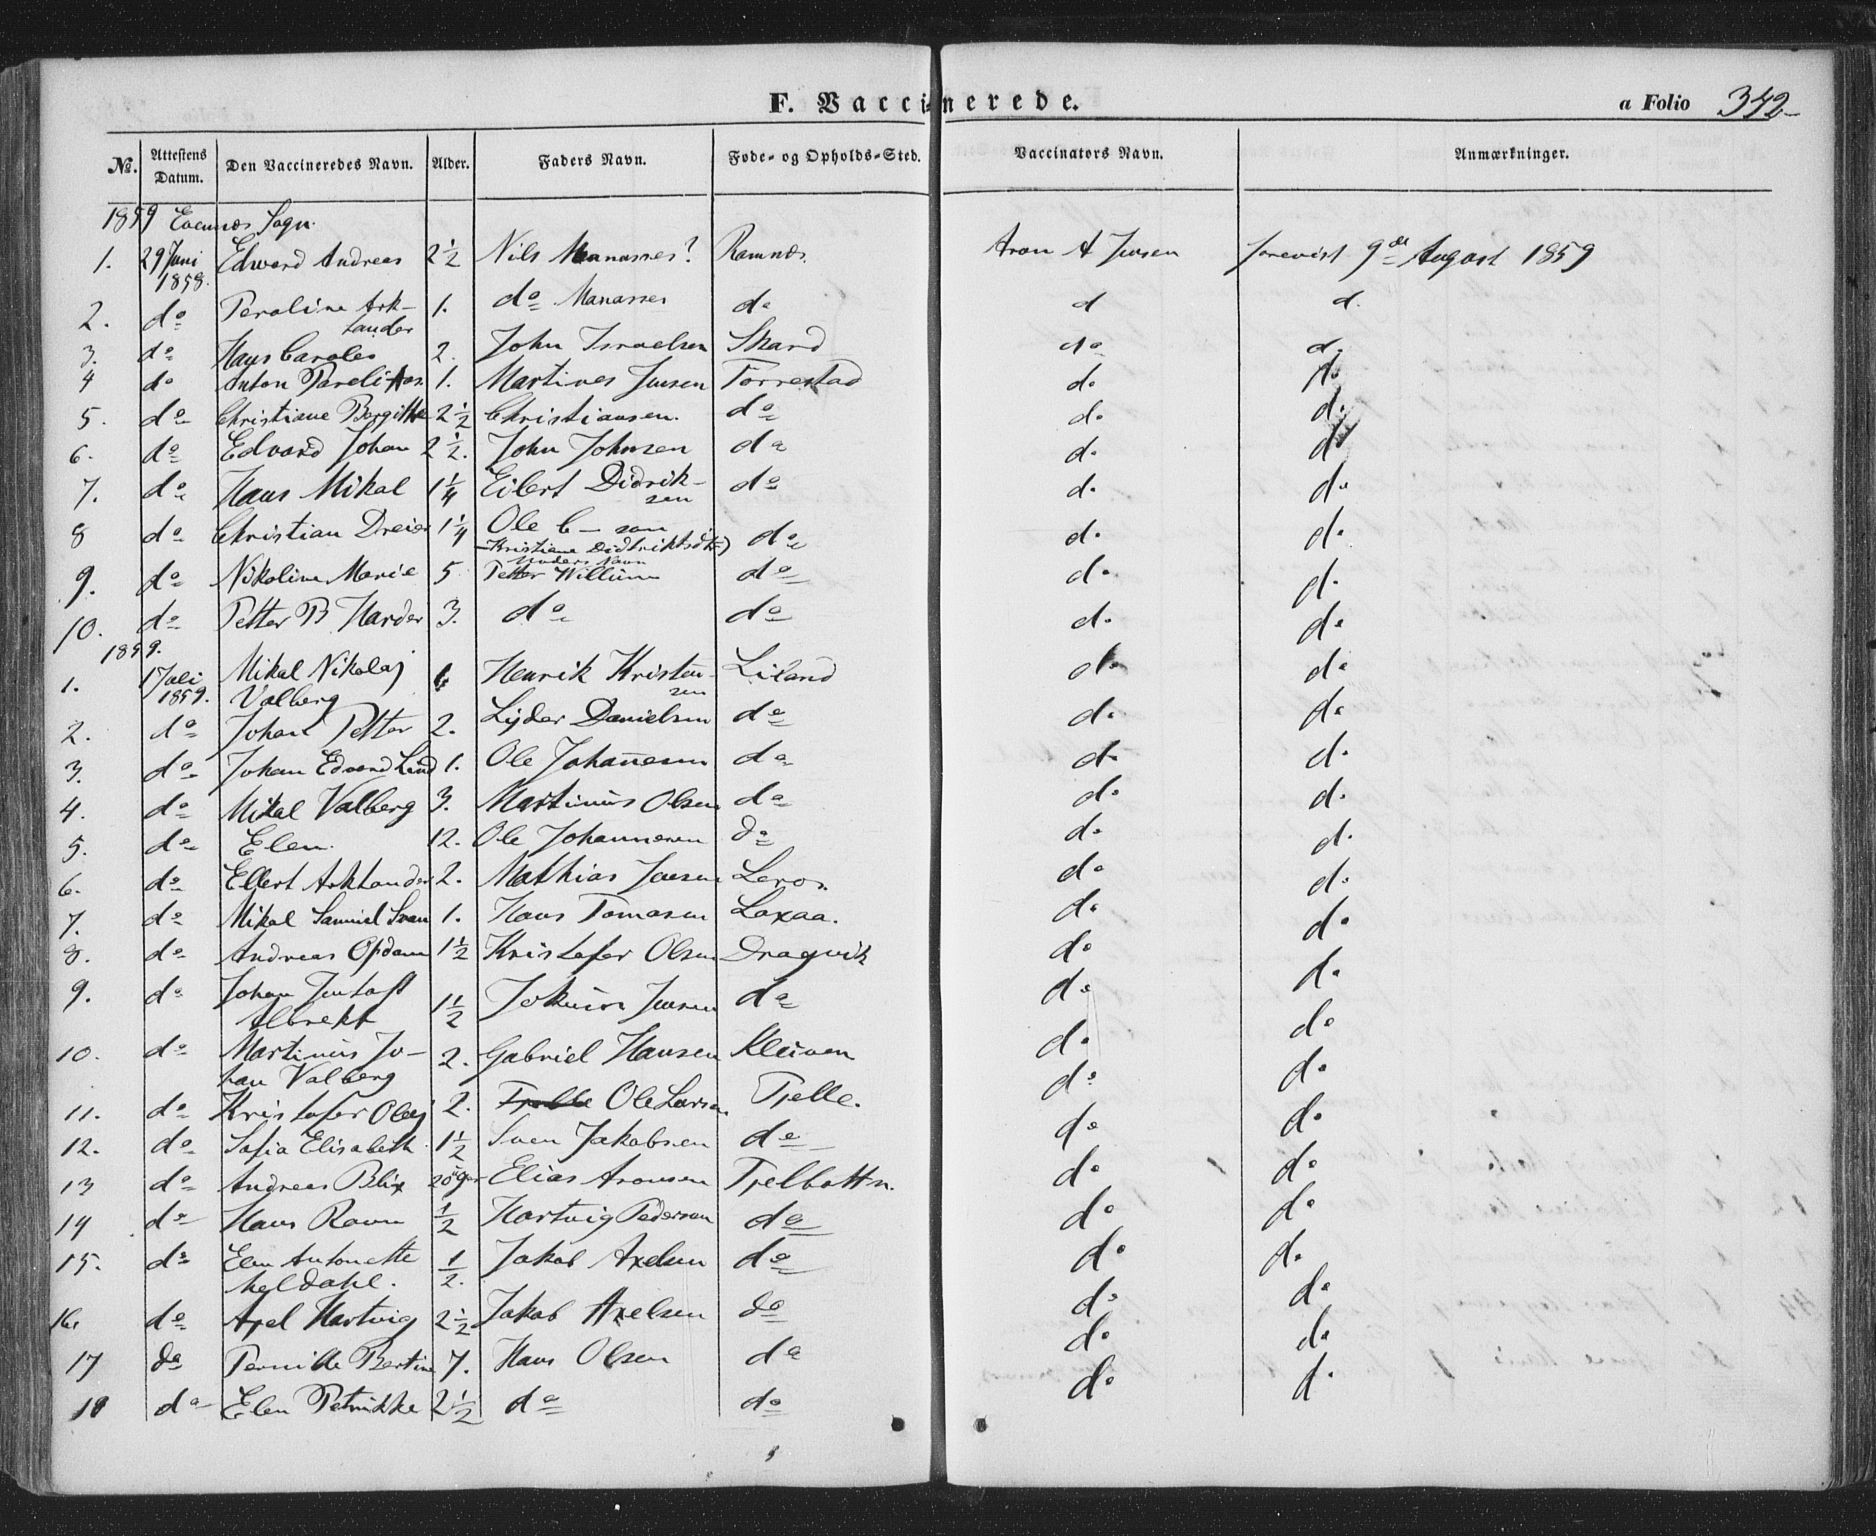 F. Vaccinerede.
a Folio 342
No. Attestens Datum. Den Vaccineredes Navn. Alder. Faders Navn. Føde- og Opholds-Sted. Vaccinators Navn. Anmærkninger.
1859 Evenæs Sogn.
1. 29 Juni 1858. Edvard Andreas 2 1/2 Nils Manasses? Ramnæs. Aron A Jensen forevist 9de August 1859
2. do Peroline Ark- 1. do Manasses do d d.
lander
3. do Hans Carolus 2. John Israelsen Skard do d.
4 do Anton Pareli 1. Martines Jensen Forrestad do do
5. do Christiane Bergitte 2 1/2 Christiansen. do do do
6. do Edvard Johan 2 1/2. John Johnsen do do do
7. do Hans Mikal 1 1/4 Eilert Didrik- do do do
sen
8 do Christian Dreier 1 1/4 Ole C- sen do do do
Kristiane Didriktsdtr)
Moders Navn
9. do Nikoline Marie 5 Petter Willum do do do
10. do Petter B Harder 3. do do do do
1859.
1. 1 Juli 1859. Mikal Nikolaj Henrik Kristen- Liland do do
Valberg sen
2. do Johan Petter 2. Lyder Danielsen do do do
3. do Johan Edvard Lind 1. Ole Johannesen do do do
4. do Mikal Valberg 3. Martinus Olsen do do do
5. do Elen. 12. Ole Johannesen do do do
6. do Ellert Arktander 2. Mathias Jensen Leros. do do
7. do Mikal Samuel Svan 1. Hans Tomasen Laxaa. do do
8. do Andreas Opdam 1 1/2 Kristofer Olsen Dragvik do do
9. do Johan Jentoft 1 1/2 Jokum Jensen do do do
Albrekt
10. do Martinus Jo- 2. Gabriel Hansen Kleiven do do
han Valberg
11. do Kristofer Olaj 2. Ole Larsen Tjelle. do do
12. do Safia Elisabeth 1 1/2 Sven Jakobsen do do do
13 do Andreas Blix 20 Elias Aronsen Tjelbottn. do do
14 do Hans Ravn 1/2 Hartvig Pedersen do do do
15. do Elen Antonette 1/2. Jakob Axelsen do do do
Meldahl.
16. do Axel Hartvig 2 1/2 Jakob Axelsen do do do
17 do Pernille Bertine 7. Hans Olsen do do do
18 do Elen Petrikke 2 1/2 do do do do